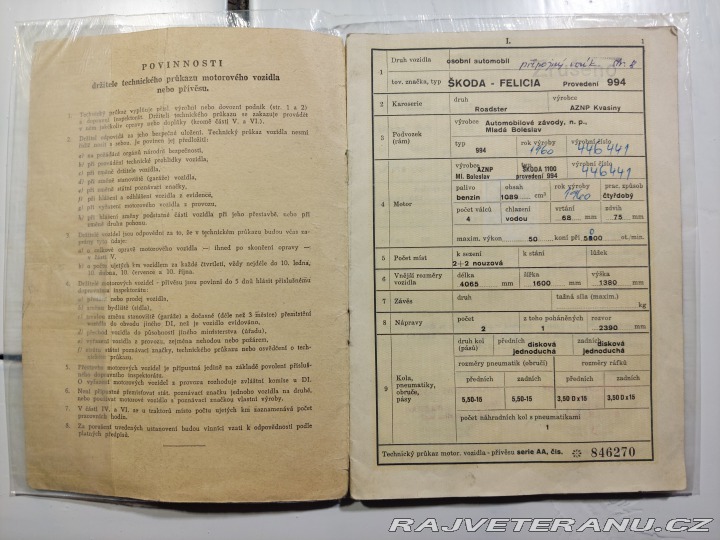 POVINNOSTI
držitele technického průkazu motorového vozidla
nebo přívěsu.
1. Technický průkaz vyplňuje před. výrobní nebo dovozní podnik (str. 1 a 2)
a dopravní inspektorát. Držiteli technického průkazu se zakazuje provádět
v něm jakékoliv opravy nebo doplňky (kromě části V. a VI.).
2. Držitel odpovídá za jeho bezpečné uložení. Technický průkaz vozidla nesmí
řídič nosit s sebou. Je povinen jej předložiti:
a) na požádání orgánů národní bezpečnosti,
b) při provádění technické prohlídky vozidla,
c) při změně držitele vozidla,
d) při změně stanoviště (garáže) vozidla,
e) při změně státní poznávací značky,
f) při hlášení a odhlášení vozidla z evidence,
g) při vyřazení motorového vozidla z provozu,
h) při hlášení změny podstatné části vozidla při jeho přestavbě, nebo při
změně druhu pohonu.
3. Držitelé vozidel jsou odpovědni za to, že v technickém průkazu budou včas
a) o celkové opravě motorového vozidla — ihned po skončení opravy —
v části V.
b) o ujetých km vozidlem za každé čtvrtletí, vždy nejdéle do 10. ledna,
10. dubna, 10. července a 10. října.
4. Držitelé motorových vozidel - přívěsu jsou povinni do 5 dnů hlásit příslušnému
dopravnímu inspektorátu:
a) nebo prodej vozidla,
b) změnu bydliště (sídla),
c) změnu stanoviště (garáže) a dočasné (déle než 3 měsíce) přemístění
vozidla do obvodu jiného DI, než je vozidlo evidováno,
d) převod vozidla do působnosti jiného ministerstva (úřadu),
e) vyřazení vozidla z provozu, zejména nehodou nebo požárem,
f) ztrátu státní poznávací značky, technického průkazu nebo osvědčení o tech-
nickém průkazu.
5. Přestavba motorových vozidel je přípustná jedině na základě povolení přísluš-
ného dopravního inspektorátu.
O vyřazení motorových vozidel z provozu rozhoduje zvláštní komise a DI.
6. Není přípustné přemisťovat stát. poznávací značku jednoho vozidla na druhé,
nebo používat motorové vozidlo s poznávací značkou vlastní výroby.
7. V části IV. a VI. se u traktorů místo počtu ujetých km zaznamenává počet
pracovních hodin.
8. Za porušení uvedených ustanovení budou viníci vzati k odpovědnosti podle
platných předpisů.
I.
1
1 Druh vozidla osobní automobil
tov. značka, typ ŠKODA - FELICIA Provedení 994
2 Karoserie druh výrobce
Roadster AZNP Kvasiny
3 Podvozek (rám) výrobce Automobilové závody, n. p.,
Mladá Boleslav
typ rok výroby výrobní číslo
994 1960 446441
4 Motor výrobce typ výrobní číslo
AZNP ŠKODA 1100
Ml. Boleslav provedení 994 446441
palivo obsah rok výroby prac. způsob
benzin 1089 cm³ 1960 čtyřdobý
počet válců chlazení vrtání zdvih
4 vodou 68 mm 75 mm
maxim. výkon 50 koní při ot./min.
5 Počet míst k sezení k stání lůžek
2 + 2 nouzová
6 Vnější rozměry vozidla délka šířka výška
4065 mm 1600 mm 1380 mm
7 Závěs druh tažná síla (maxim.)
kg
8 Nápravy počet z toho poháněných rozvor
2 1 2390 mm
9 Kola, pneumatiky, obruče, pásy
druh kol (pásů) předních zadních
disková jednoduchá disková jednoduchá
rozměry pneumatik (obručí) rozměry ráfků
předních zadních předních zadních
5,50-15 5,50-15 3,50 D x 15 3,50 D x 15
počet náhradních kol s pneumatikami
1
Technický průkaz motor. vozidla - přívěsu serie AA, čís. 846270
RAJVETERANU.CZ